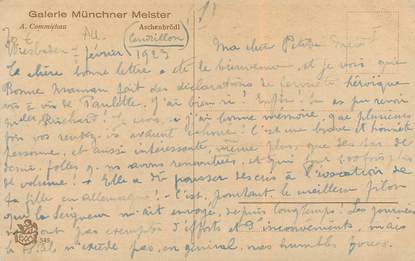 Galerie Münchner Meister
A. Commichau Aschenbrödl
(Cendrillon)
Wiesbaden 7 février 1923
Ma chère Petite
Ta chère bonne lettre a été la bienvenue, et je vois que
Bonne Maman fait des déclarations de
vis à vis de Paulette. J'ai bien ri! Enfin! tu as pu revoir
Mr des Je crois, si j'ai bonne mémoire, que plusieurs
fois vos rendez-vous avaient C'est une brave et honnête
personne, et aussi intéressante, même plus, que des tas de
folles que ns avons rencontrées, et qui font 100 fois plus
de volume! Elle a dû pousser des cris à l'évocation de
ta fille en allemagne! C'est, pourtant le meilleur filon
que le Seigneur m'ait envoyé, depuis longtemps. Les journées
ne sont pas exemptes d'efforts et d'inconvénients, mais
le total, n'excède pas, en général, mes humbles forces.
345